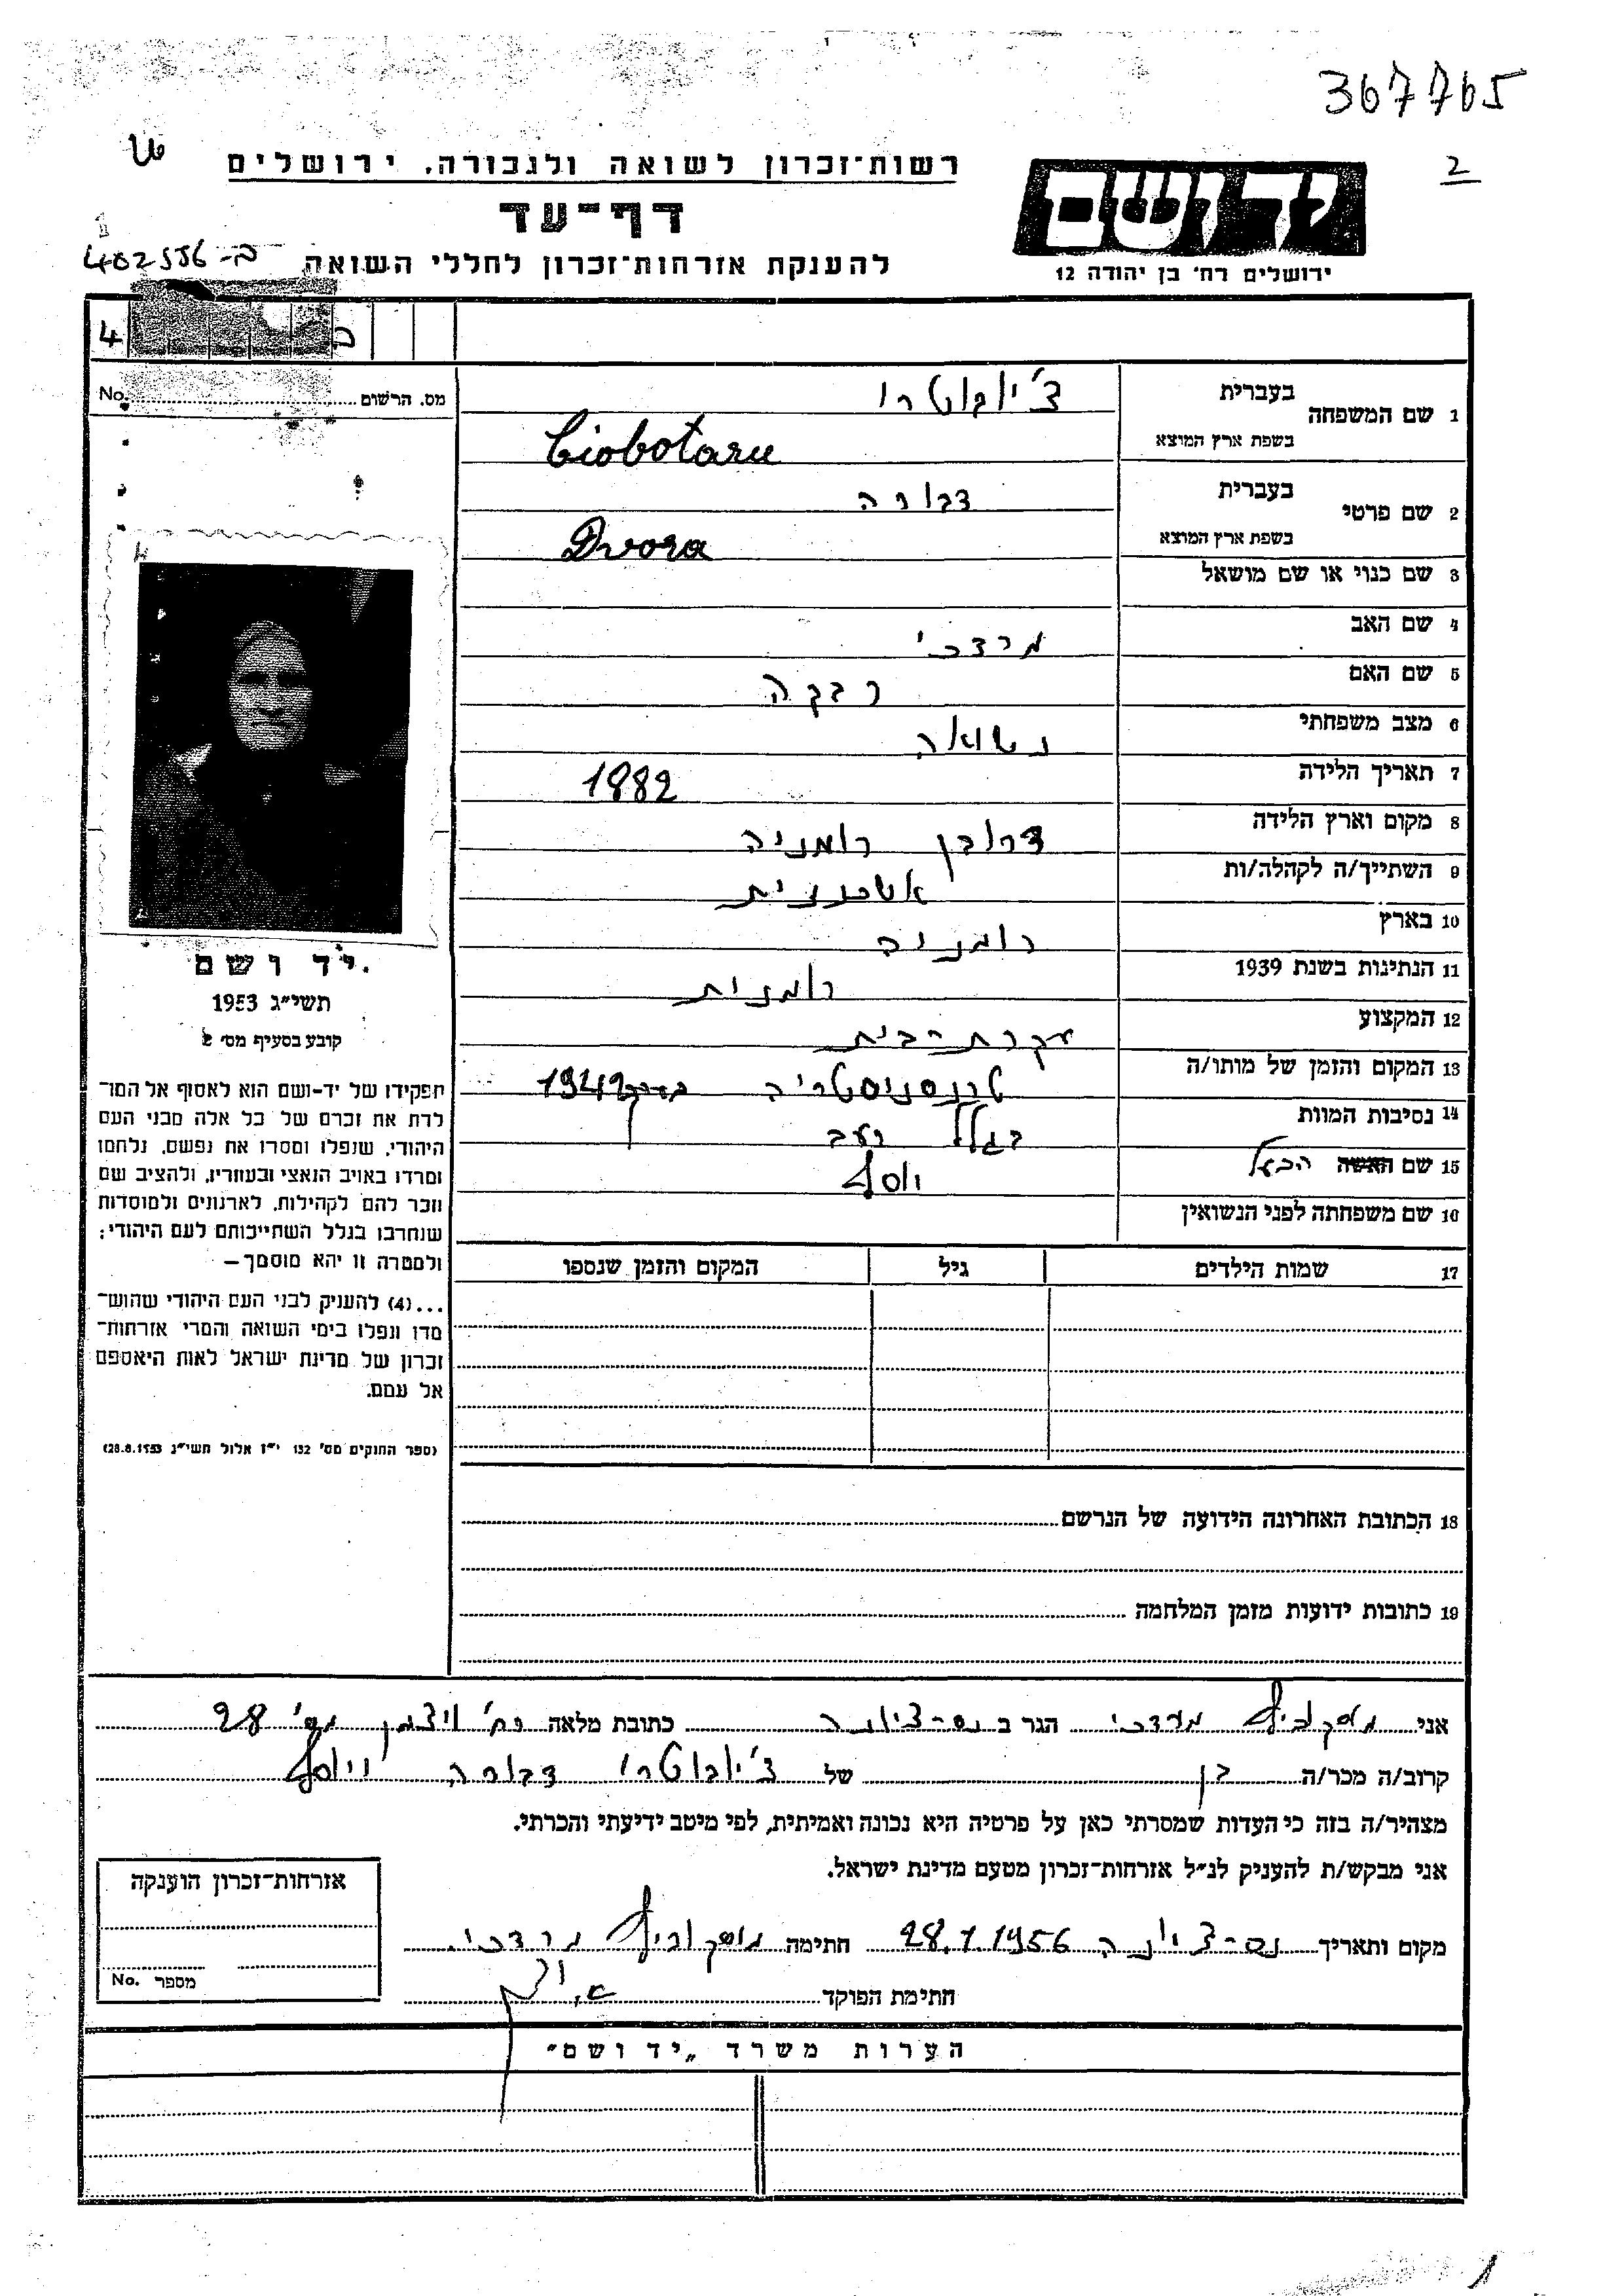 367765
2
רשות־זכרון לשואה ולגבורה, ירושלים
יד ושם
דף־עד
ירושלים רח׳ בן יהודה 12
להענקת אזרחות־זכרון לחללי השואה
ב-402556
4
1 שם המשפחה
בעברית צ׳יובוטרו
בשפת ארץ המוצא Ciobotaru
מס. הרשום No.
2 שם פרטי
בעברית דבורה
בשפת ארץ המוצא Dvora
3 שם כנוי או שם מושאל
4 שם האב מרדכי
5 שם האם רבקה
6 מצב משפחתי נשואה
7 תאריך הלידה 1882
8 מקום וארץ הלידה רומניה
9 השתייך/ה לקהלה/ות אשכנזית
10 בארץ רומניה
11 הנתינות בשנת 1939 רומנית
12 המקצוע עקרת הבית
13 המקום והזמן של מותו/ה טרנסניסטריה 1942
14 נסיבות המוות בגלל רעב
15 שם האשה הבעל יוסף
16 שם משפחתה לפני הנשואין
17 שמות הילדים גיל המקום והזמן שנספו
18 הכתובת האחרונה הידועה של הנרשם
19 כתובות ידועות מזמן המלחמה
יד ושם
תשי״ג 1953
קובע בסעיף מס׳ 2
תפקידו של יד-ושם הוא לאסוף אל המו־
לדת את זכרם של כל אלה מבני העם
היהודי, שנפלו ומסרו את נפשם, נלחמו
ומרדו באויב הנאצי ובעוזריו, ולהציב שם
וזכר להם לקהילות, לארגונים ולמוסדות
שנחרבו בגלל השתייכותם לעם היהודי;
ולמטרה זו יהא מוסמך —
...(4) להעניק לבני העם היהודי שהוש־
מדו ונפלו בימי השואה והמרי אזרחות־
זכרון של מדינת ישראל לאות היאספם
אל עמם.
(ספר החוקים מס׳ 132 י״ז אלול תשי״ג 28.8.1953)
אני מוסקוביץ מרדכי הגר ב נס-ציונה כתובת מלאה רח׳ ויצמן מס׳ 28
קרוב/ה מכר/ה בן של צ׳יובוטרו דבורה ויוסף
מצהיר/ה בזה כי העדות שמסרתי כאן על פרטיה היא נכונה ואמיתית, לפי מיטב ידיעתי והכרתי.
אני מבקש/ת להעניק לנ״ל אזרחות־זכרון מטעם מדינת ישראל.
מקום ותאריך נס-ציונה 28.1.1956 חתימה מוסקוביץ מרדכי
חתימת הפוקד
אזרחות־זכרון הוענקה
מספר No.
הערות משרד „יד ושם״